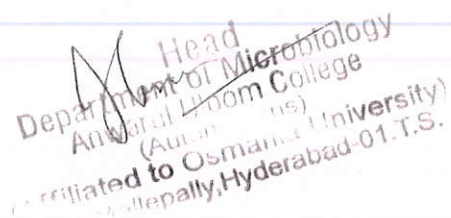 Head
Department of Microbiology
Anwarul Uloom College
(Autonomous)
(Affiliated to Osmania University)
Mallepally,Hyderabad-01.T.S.